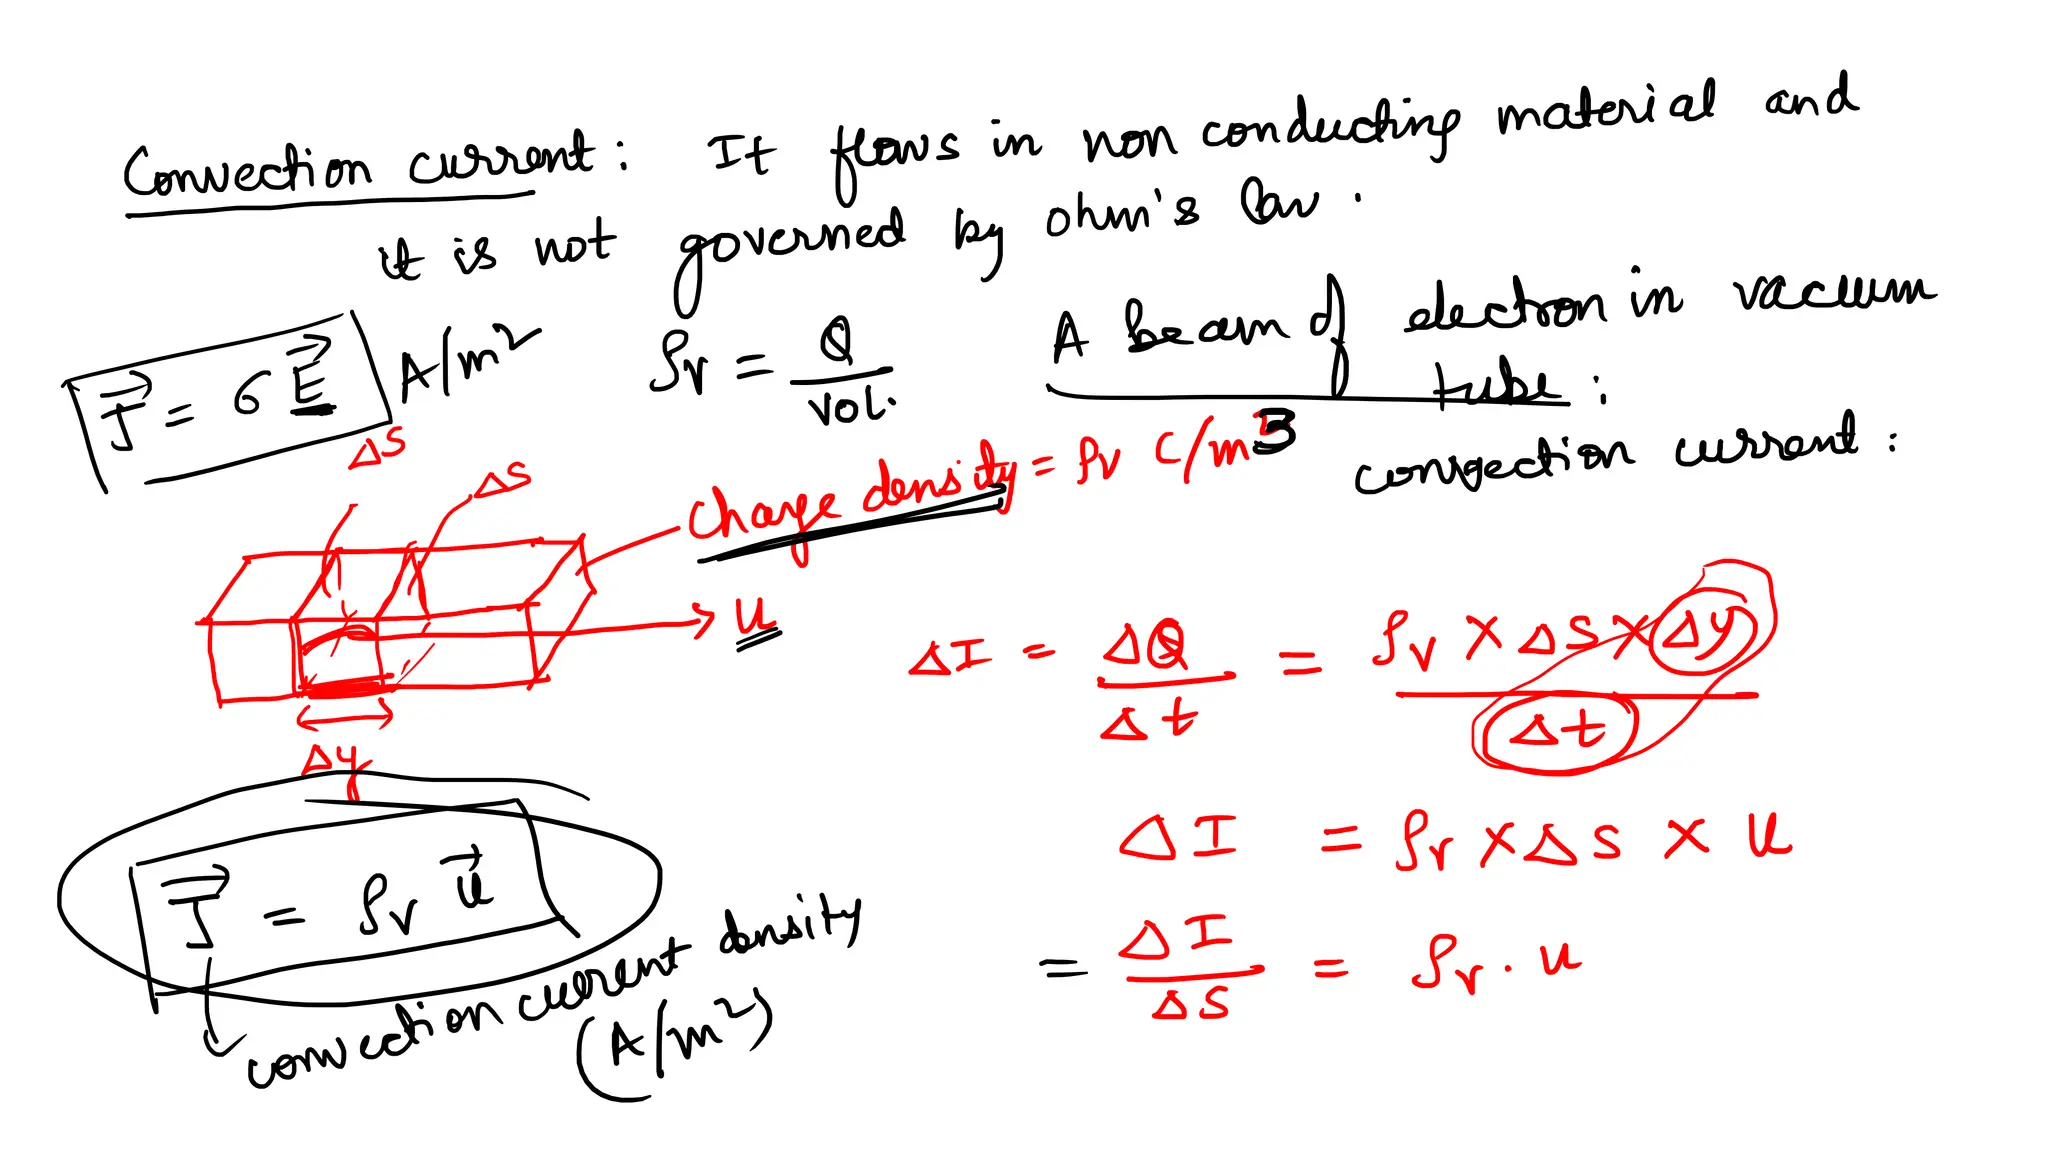 Convection current: It flows in non conducting material and
it is not governed by ohm's law.
J = σ E A/m²
ρv = Q / vol.
A beam of electron in vacuum
tube:
convection current:
ΔS
ΔS
charge density = ρv C/m3
u
Δy
ΔI = ΔQ / Δt = ρv × ΔS × Δy / Δt
ΔI = ρv × ΔS × u
= ΔI / ΔS = ρv . u
J = ρv u
convection current density
(A/m²)